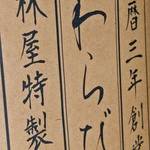 暦三年創業
わらび
林屋特製